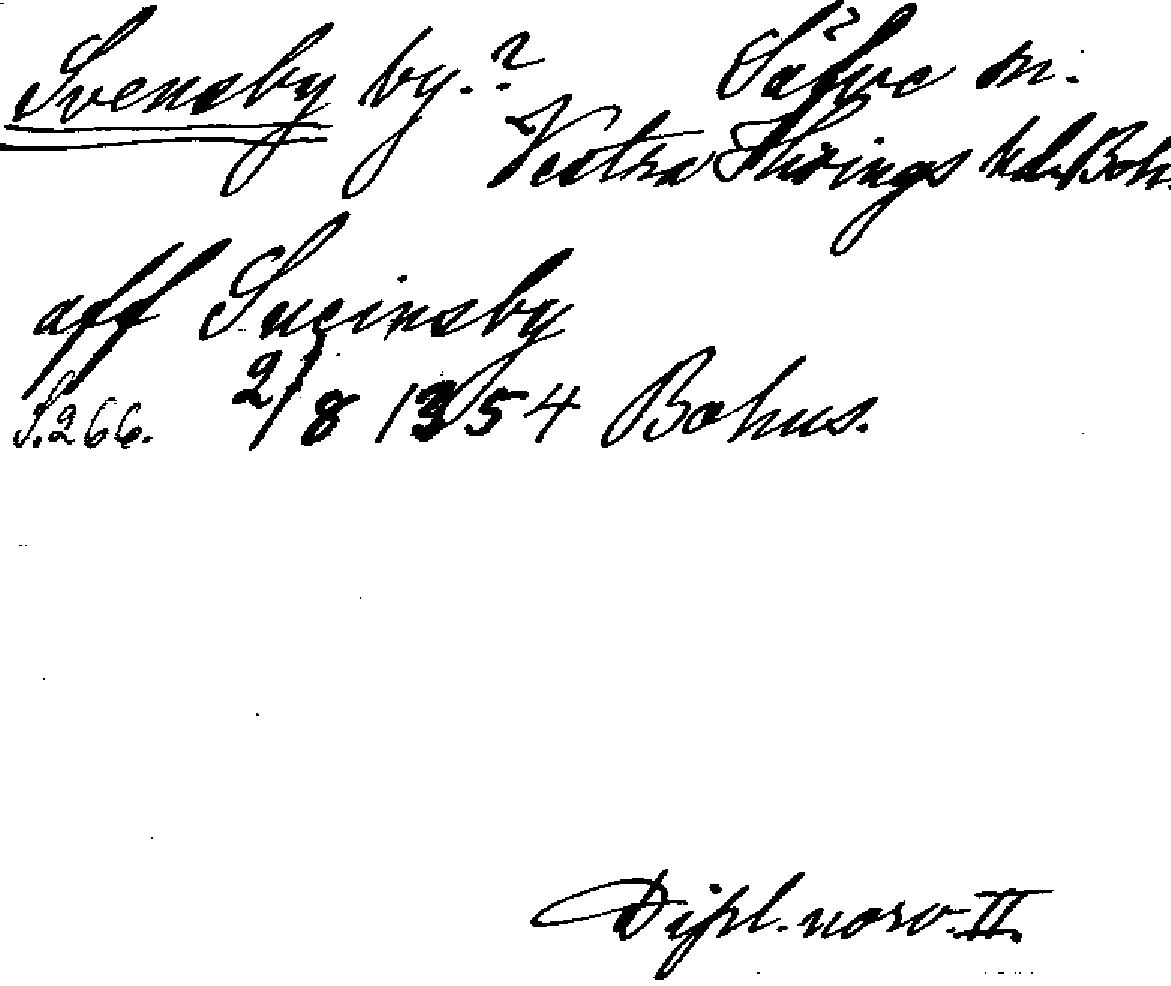 Svensby by.? Säfve sn.
Vestra Hisings hd. Boh.
aff Sueinsby
S. 266. 2/8 1354 Bohus.
Dipl. norv. II.